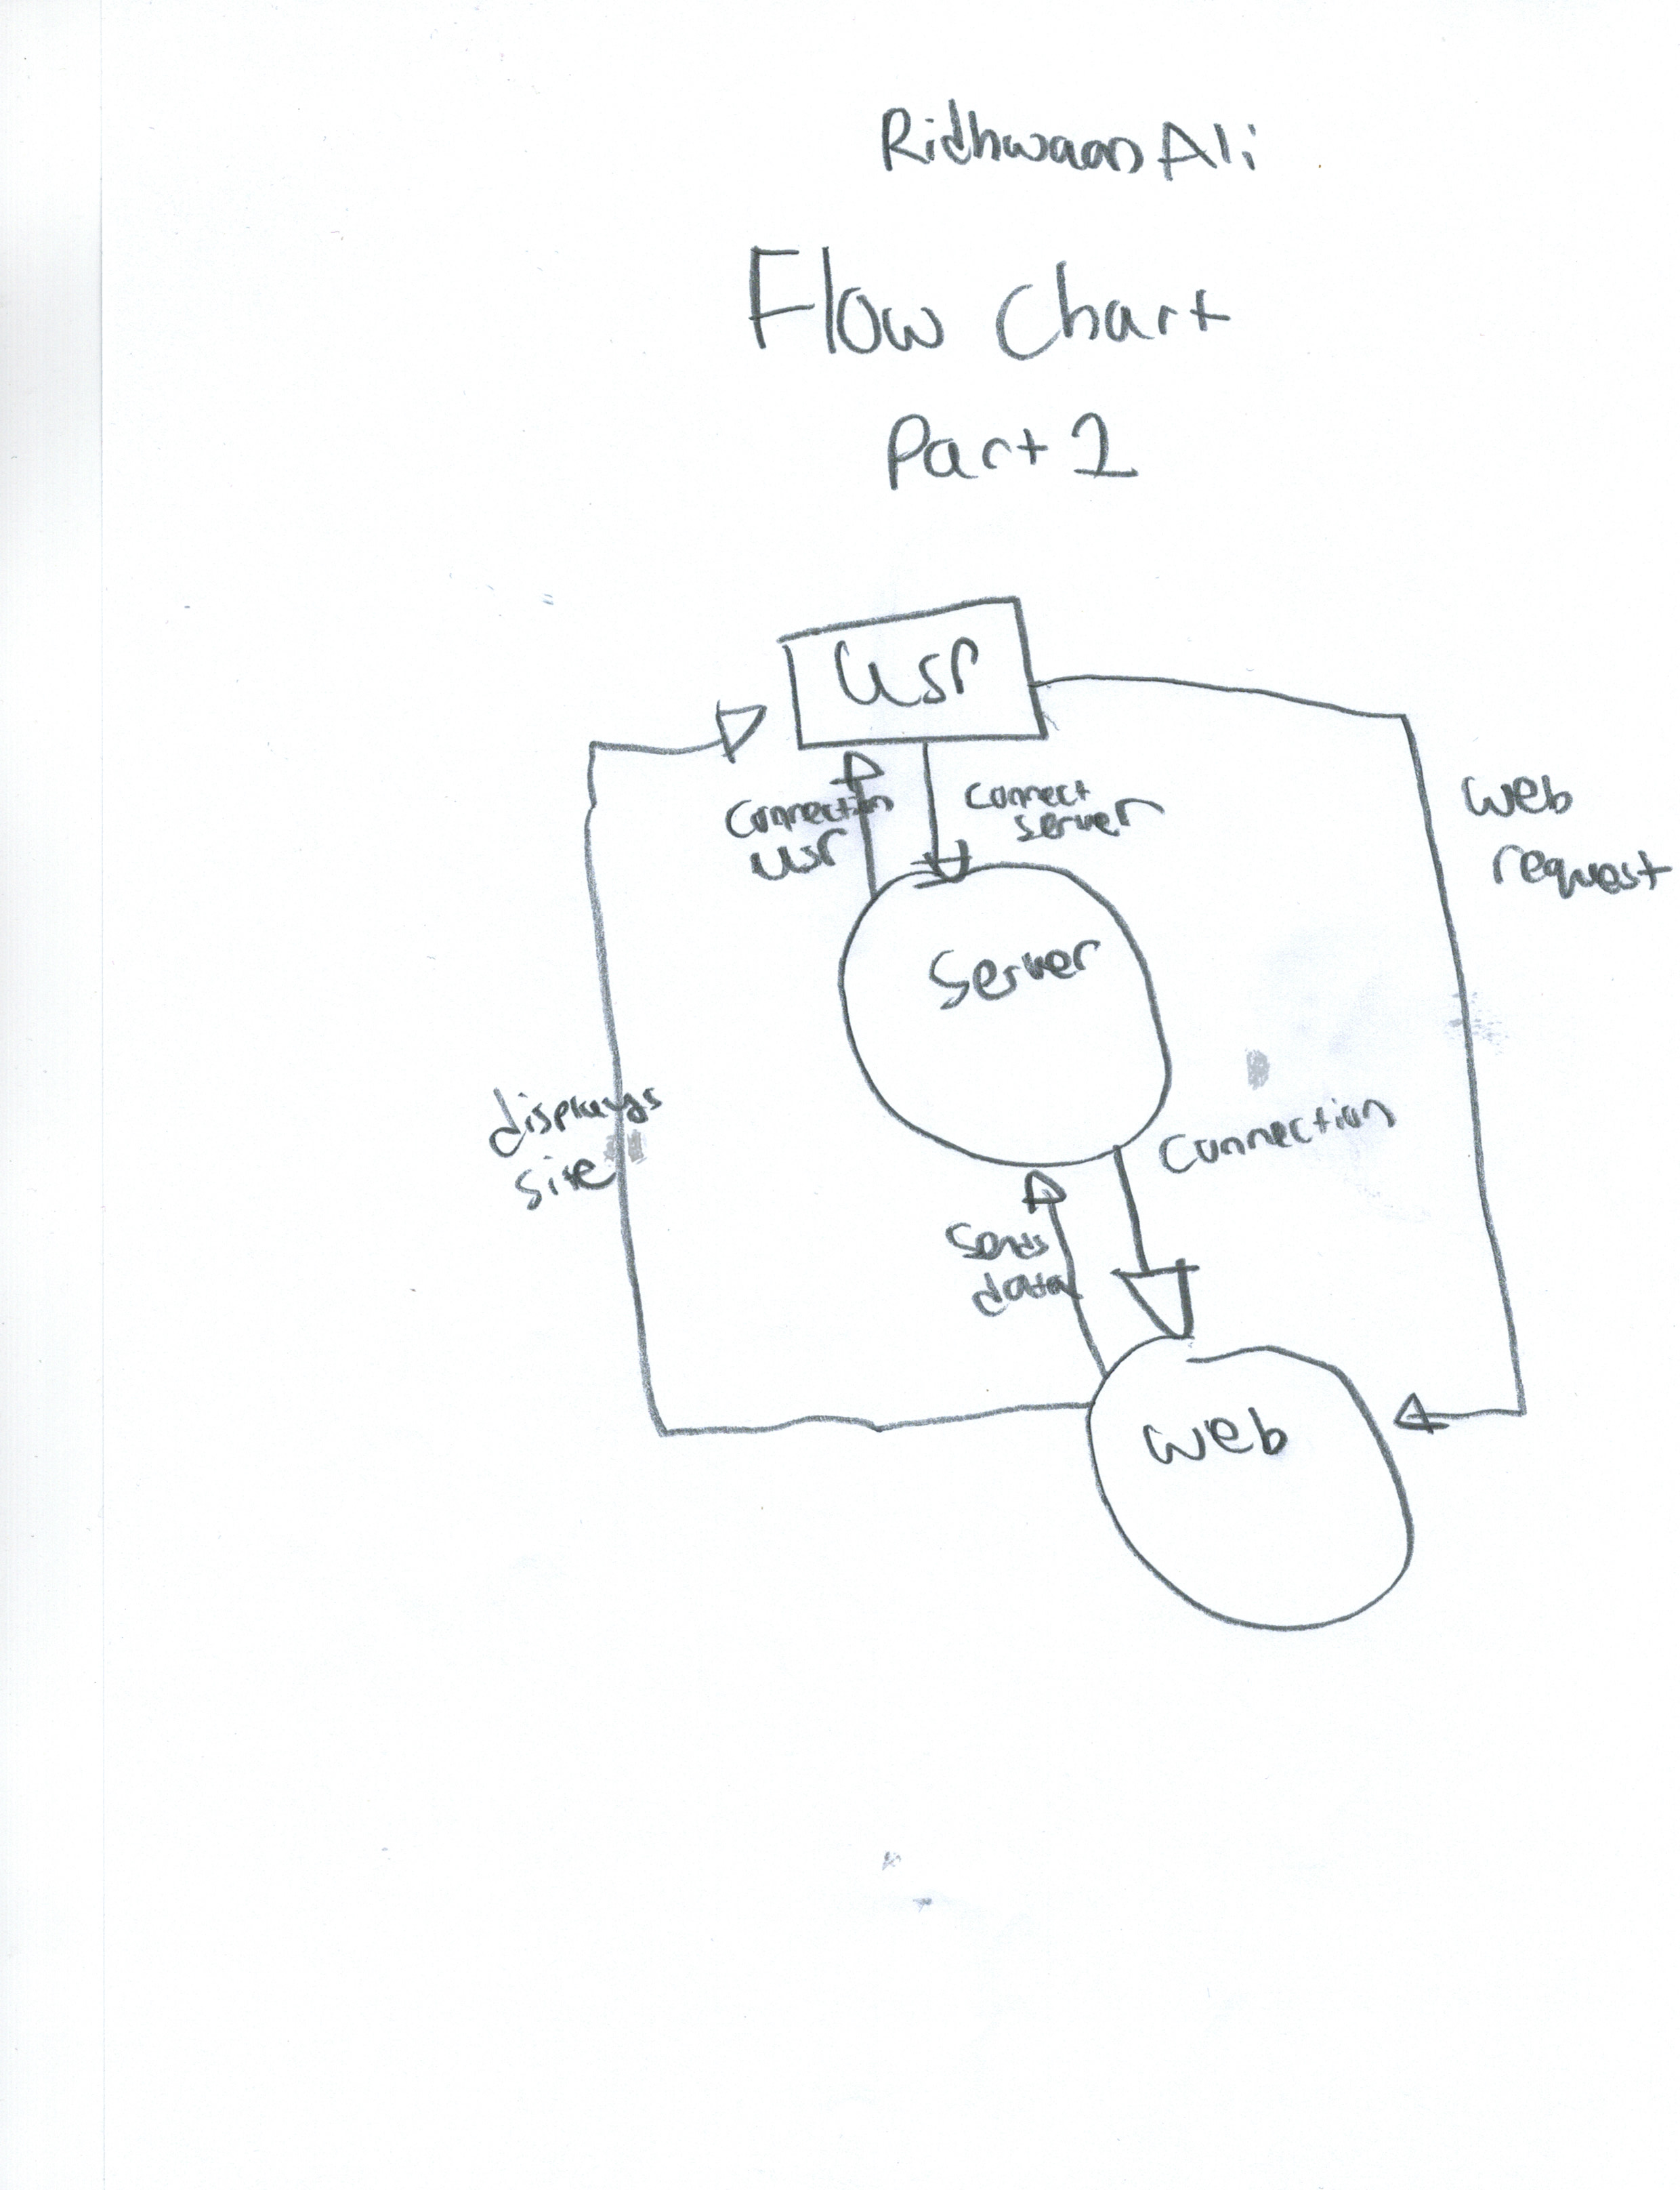 Ridhwaan Ali
Flow Chart
Part 1
usr
Connection
usr
Connect
server
web
request
Server
displays
site
Connection
Sends
data
web